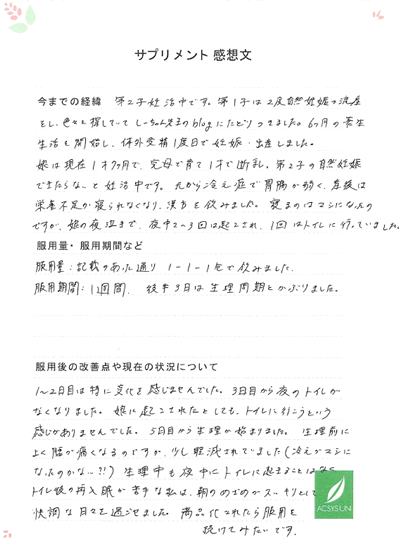 サプリメント 感想文
今までの経緯 第2子妊活中です。第1子は2度自然妊娠→流産
をし、色々と探していて しーちゃん先生のblogにたどりつきました。6ヶ月の養生
生活を開始し、体外受精1度目で妊娠・出産しました。
娘は現在1才9ヶ月で、完母で育て1才で断乳。第2子の自然妊娠
できたらな、と妊活中です。元から冷え症で胃腸が弱く、産後は
栄養不足か寝られなくなり、漢方を飲みました。寝るのはマシになったの
ですが、娘の夜泣きで、夜中2〜3回は起こされ、1回はトイレに行っていました。
服用量・服用期間など
服用量：記載のあった通り 1-1-1包で飲みました。
服用期間：1週間、後半3日は生理周期とかぶりました。
服用後の改善点や現在の状況について
1〜2日目は特に変化を感じませんでした。3日目から夜のトイレが
なくなりました。娘に起こされたとしても、トイレに行こうという
感じがありませんでした。5日目から生理が始まりました。生理前に
よく腰が痛くなるのですが、少し軽減されていました（冷えがマシに
なったのかな…?!）生理中も夜中にトイレに起きることはなく
トイレ後の再入眠が苦手な私は、朝のめざめがスッキリとして
快調な日々を過ごせました。商品化されたら服用を
続けてみたいです。
ACSYSUN